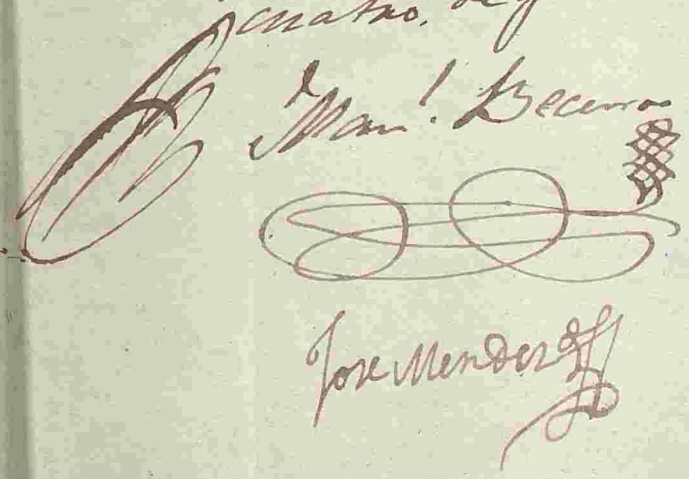 cuatro. de
Man.l Becerra
Jose Mendez